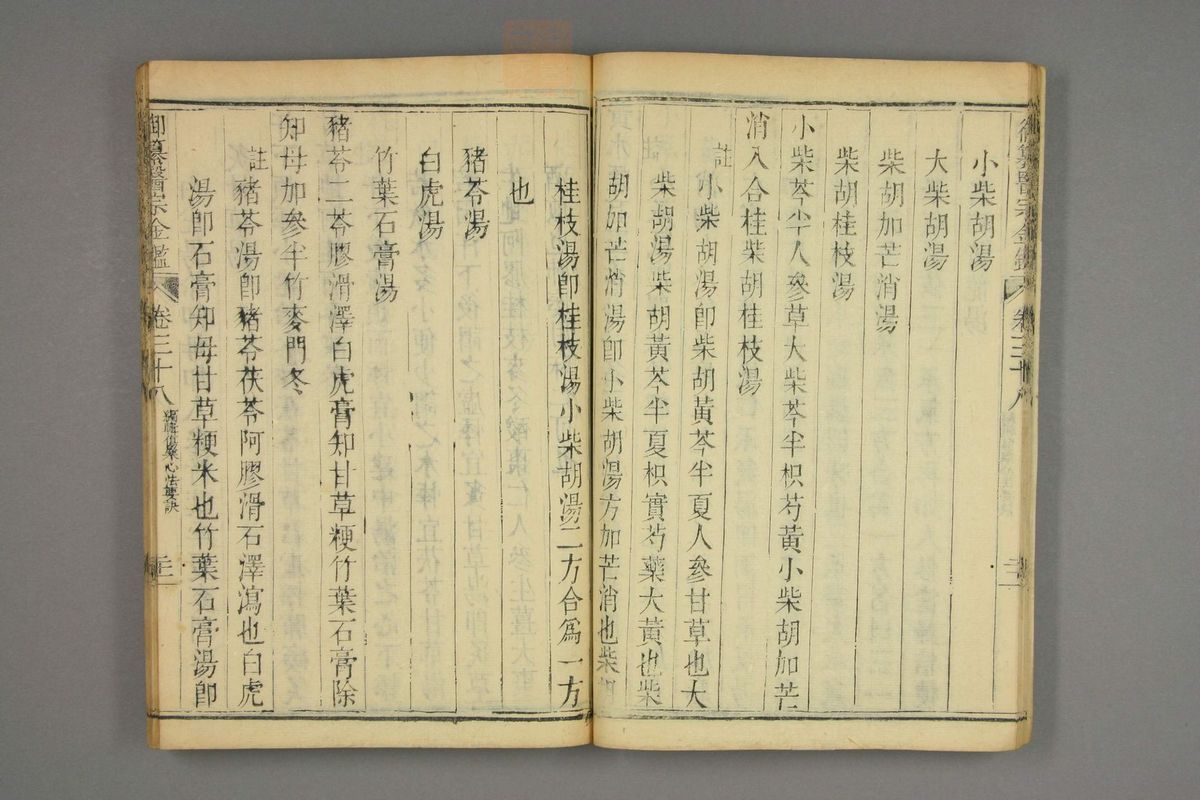 御纂醫宗金鑑 卷三十八
小柴胡湯
大柴胡湯
柴胡加芒消湯
柴胡桂枝湯
小柴芩半人參草大柴芩半枳芍黃小柴胡加芒
消入合桂柴胡桂枝湯
註
小柴胡湯卽柴胡黃芩半夏人參甘草也大
柴胡湯柴胡黃芩半夏枳實芍藥大黃也柴
胡加芒消湯卽小柴胡湯方加芒消也柴胡
桂枝湯卽桂枝湯小柴胡湯二方合爲一方
也
豬苓湯
白虎湯
竹葉石膏湯
豬苓二苓膠滑澤白虎膏知甘草粳竹葉石膏除
知母加參半竹麥門冬
註
豬苓湯卽豬苓茯苓阿膠滑石澤瀉也白虎
湯卽石膏知母甘草粳米也竹葉石膏湯卽
御纂醫宗金鑑 卷三十八 傷寒心法要訣 三二